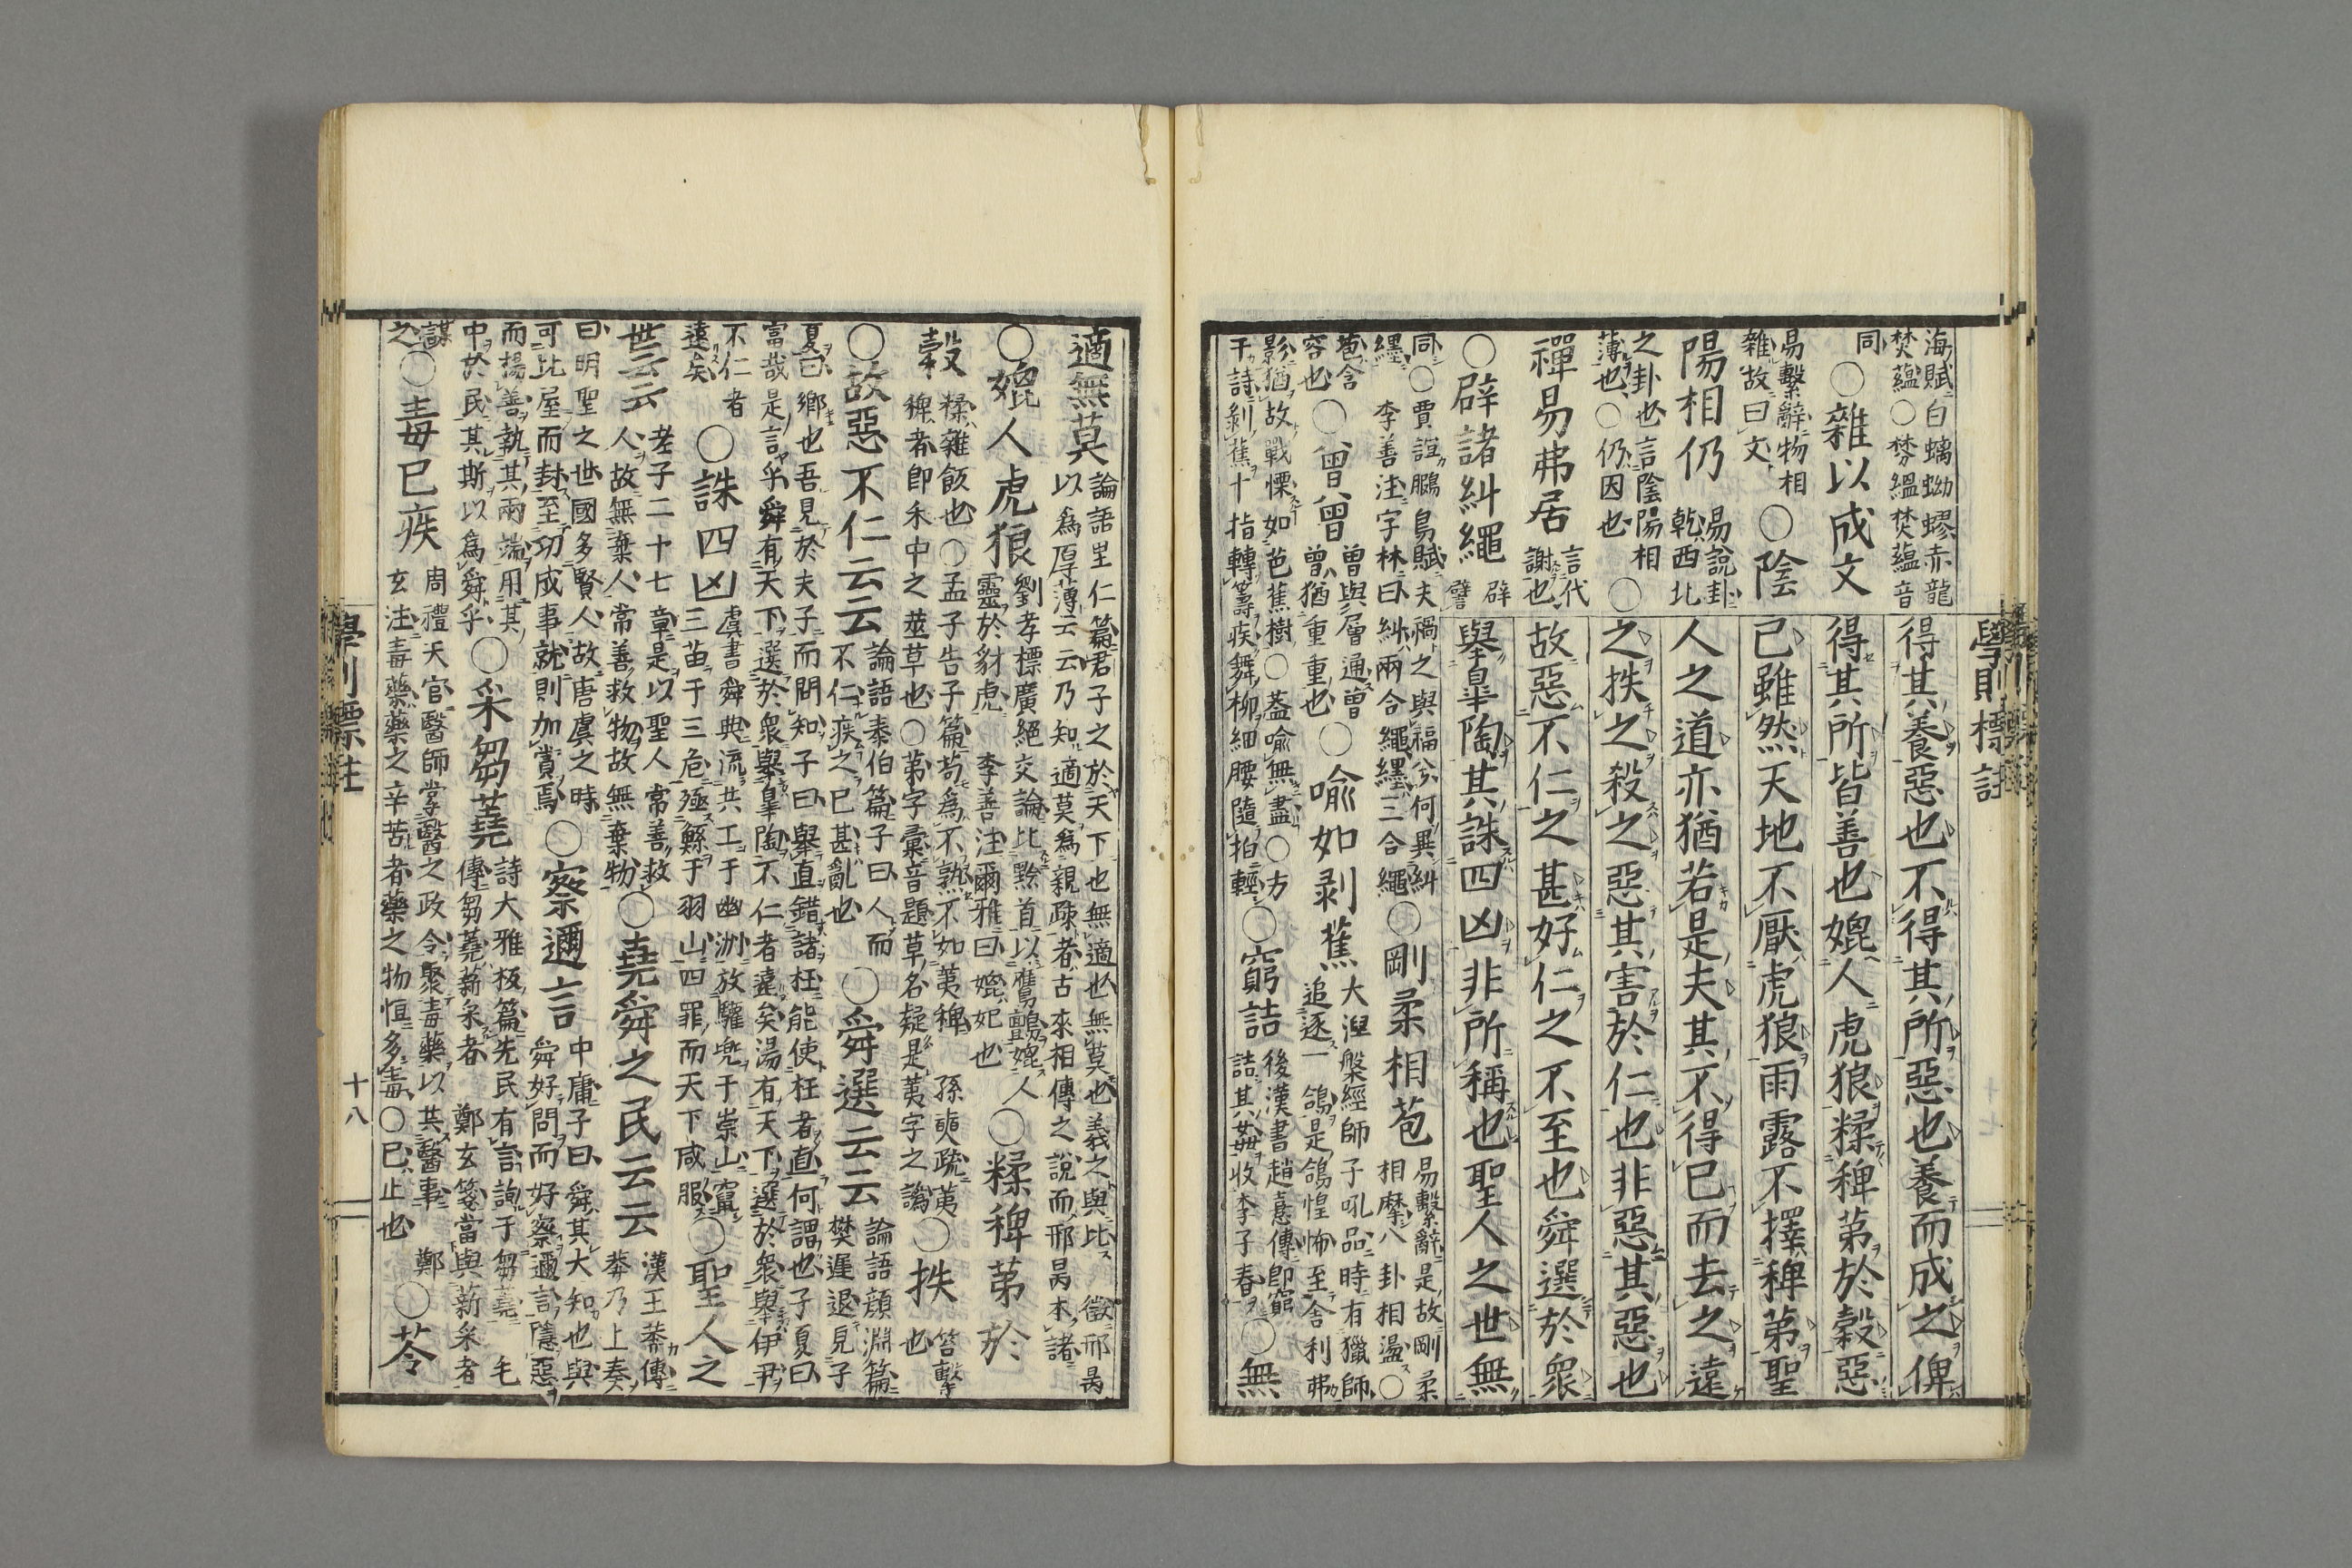 學則標註
海賦白螭蚴蟉赤龍
焚蘊○棼縕焚蘊音
同○雜以成文
易繫辭物相
雜故曰文○陰
陽相仍
易說卦
乾西北
之卦也言陰陽相
薄也○仍因也○
禪易弗居
言代
謝也
○辟諸糾纆
辟
譬
得其養惡也不得其所惡也養而成之俾
得其所皆善也媲人虎狼糅稗第於穀惡
已雖然天地不厭虎狼雨露不擇稗第聖
人之道亦猶若是夫其不得已而去之遠
之抶之殺之惡其害於仁也非惡其惡也
故惡不仁之甚好仁之不至也舜選於眾
舉皋陶其誅四凶非所稱也聖人之世無
同○賈誼鵩鳥賦夫禍之與福兮何異糾
纆李善注字林曰糾兩合繩纆三合繩○剛柔相苞
易繫辭是故剛柔
相摩八卦相盪○
苞含
容也○曾曾
曾與層通曾
曾猶重重也○喻如剥蕉
大涅槃經師子吼品時有獵師
追逐一鴿是鴿惶怖至舍利弗
影猶故戰慄如芭蕉樹○蓋喻無盡○方
干詩剝蕉十指轉籌疾舞柳細腰隨拍輕○窮詰
後漢書趙憙傳即窮
詰其姦收李子春○無
適無莫
論語里仁篇君子之於天下也無適也無莫也義之與比徵邢昺
以為厚薄云云乃知適莫為親疎者古來相傳之說而邢昺本諸
○媲人虎狼
劉孝標廣絕交論比黔首以鷹鸇媲人
靈於豺虎李善注爾雅曰媲妃也○糅稗第於
穀
糅雜飯也○孟子告子篇苟為不熟不如荑稗孫奭疏荑
稗者即禾中之莁草也○第字彙音題草名疑是荑字之譌○抶
笞擊
也
○故惡不仁云云
論語泰伯篇子曰人而
不仁疾之已甚亂也○舜選云云
論語顏淵篇
樊遲退見子
夏曰鄉也吾見於夫子而問知子曰舉直錯諸枉能使枉者直何謂也子夏曰
富哉是言乎舜有天下選於眾舉皋陶不仁者遠矣湯有天下選於眾舉伊尹
不仁者
遠矣○誅四凶
虞書舜典流共工于幽洲放驩兜于崇山竄
三苗于三危殛鯀于羽山四罪而天下咸服○聖人之
世云云
老子二十七章是以聖人常善救
人故無棄人常善救物故無棄物○堯舜之民云云
漢王莽傳
莽乃上奏
曰明聖之世國多賢人故唐虞之時
可比屋而封至功成事就則加賞焉○察邇言
中庸子曰舜其大知也與
舜好問而好察邇言隱惡
而揚善執其兩端用其
中於民其斯以為舜乎○采芻蕘
詩大雅板篇先民有言詢于芻蕘毛
傳芻蕘薪采者鄭玄箋當與薪采者
謀
之○毒已疾
周禮天官醫師掌醫之政令聚毒藥以共醫事鄭
玄注毒藥藥之辛苦者藥之物恒多毒○已止也○苓
學則標註
十八